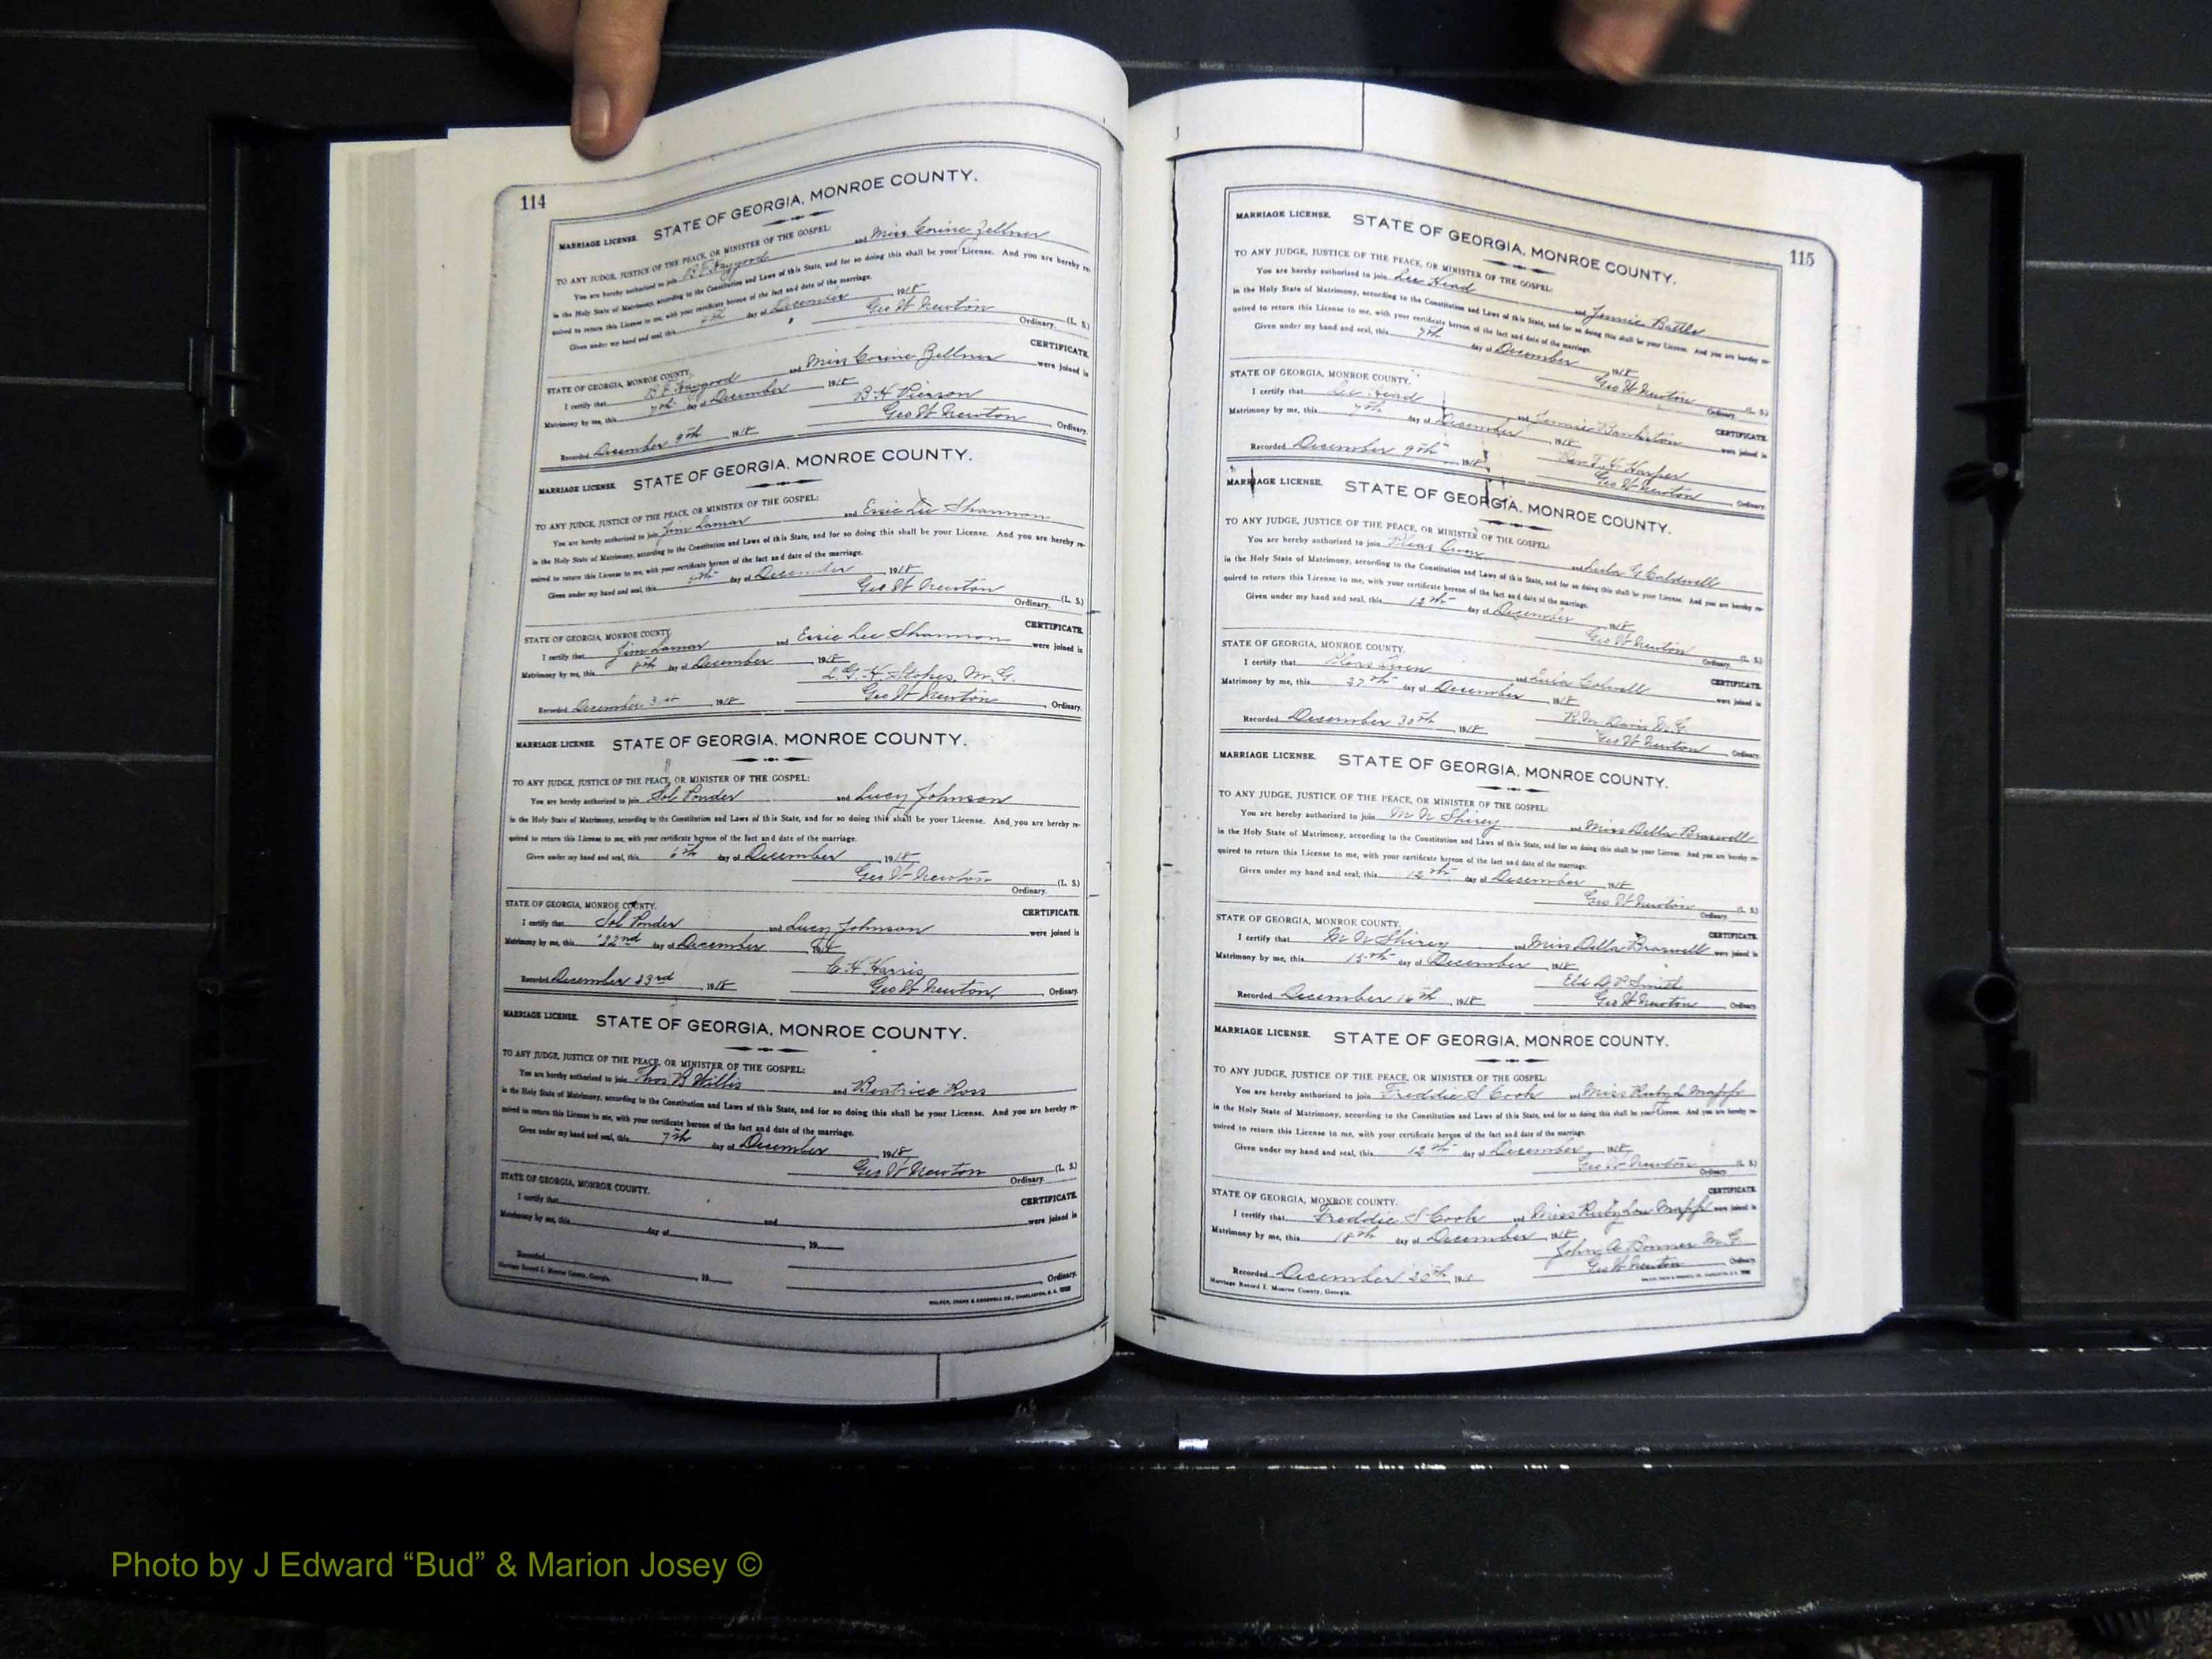 114
MARRIAGE LICENSE. STATE OF GEORGIA, MONROE COUNTY.
TO ANY JUDGE, JUSTICE OF THE PEACE, OR MINISTER OF THE GOSPEL:
You are hereby authorized to join B E Haygood and Miss Corine Zellner
in the Holy State of Matrimony, according to the Constitution and Laws of this State, and for so doing this shall be your License. And you are hereby re-
quired to return this License to me, with your certificate hereon of the fact and date of the marriage.
Given under my hand and seal, this day of December 1918
Geo W Newton (L. S.)
Ordinary.
STATE OF GEORGIA, MONROE COUNTY. CERTIFICATE.
I certify that B E Haygood and Miss Corine Zellner were joined in
Matrimony by me, this 7th day of December 1918
B H Pierson
Recorded December 9th 1918 Geo W Newton Ordinary.
MARRIAGE LICENSE. STATE OF GEORGIA, MONROE COUNTY.
TO ANY JUDGE, JUSTICE OF THE PEACE, OR MINISTER OF THE GOSPEL:
You are hereby authorized to join Jim Lamar and Essie Lee Shannon
in the Holy State of Matrimony, according to the Constitution and Laws of this State, and for so doing this shall be your License. And you are hereby re-
quired to return this License to me, with your certificate hereon of the fact and date of the marriage.
Given under my hand and seal, this 5th day of December, 1918
Geo W Newton (L. S.)
Ordinary.
STATE OF GEORGIA, MONROE COUNTY. CERTIFICATE.
I certify that Jim Lamar and Essie Lee Shannon were joined in
Matrimony by me, this 8th day of December, 1918
L. G. H. Stokes, M. G.
Recorded December 1918 Geo W Newton, Ordinary.
MARRIAGE LICENSE. STATE OF GEORGIA, MONROE COUNTY.
TO ANY JUDGE, JUSTICE OF THE PEACE, OR MINISTER OF THE GOSPEL:
You are hereby authorized to join Sol Ponder and Lucy Johnson
in the Holy State of Matrimony, according to the Constitution and Laws of this State, and for so doing this shall be your License. And you are hereby re-
quired to return this License to me, with your certificate hereon of the fact and date of the marriage.
Given under my hand and seal, this 6th day of December, 1918
Geo W Newton (L. S.)
Ordinary.
STATE OF GEORGIA, MONROE COUNTY. CERTIFICATE.
I certify that Sol Ponder and Lucy Johnson were joined in
Matrimony by me, this 22nd day of December 1918
C H Harris
Recorded December 23rd 1918 Geo W Newton, Ordinary.
MARRIAGE LICENSE. STATE OF GEORGIA, MONROE COUNTY.
TO ANY JUDGE, JUSTICE OF THE PEACE, OR MINISTER OF THE GOSPEL:
You are hereby authorized to join Thos B Willis and Beatrice Ross
in the Holy State of Matrimony, according to the Constitution and Laws of this State, and for so doing this shall be your License. And you are hereby re-
quired to return this License to me, with your certificate hereon of the fact and date of the marriage.
Given under my hand and seal, this 7th day of December, 1918
Geo W Newton (L. S.)
Ordinary.
STATE OF GEORGIA, MONROE COUNTY. CERTIFICATE.
I certify that and were joined in
Matrimony by me, this day of, 19
Recorded, 19 Ordinary.
Marriage Record I, Monroe County, Georgia. WALKER, EVANS & COGSWELL CO., CHARLESTON, S. C.
115
MARRIAGE LICENSE. STATE OF GEORGIA, MONROE COUNTY.
TO ANY JUDGE, JUSTICE OF THE PEACE, OR MINISTER OF THE GOSPEL:
You are hereby authorized to join Lee Head and Jennie Battle
in the Holy State of Matrimony, according to the Constitution and Laws of this State, and for so doing this shall be your License. And you are hereby re-
quired to return this License to me, with your certificate hereon of the fact and date of the marriage.
Given under my hand and seal, this 7th day of December 1918
Geo W Newton (L. S.)
Ordinary.
STATE OF GEORGIA, MONROE COUNTY. CERTIFICATE.
I certify that Lee Head and Jennie Bankston were joined in
Matrimony by me, this 7th day of December, 1918
Rev Harper
Recorded December 9th, 1918 Geo W Newton Ordinary.
MARRIAGE LICENSE. STATE OF GEORGIA, MONROE COUNTY.
TO ANY JUDGE, JUSTICE OF THE PEACE, OR MINISTER OF THE GOSPEL:
You are hereby authorized to join Pleas and Lula G Caldwell
in the Holy State of Matrimony, according to the Constitution and Laws of this State, and for so doing this shall be your License. And you are hereby re-
quired to return this License to me, with your certificate hereon of the fact and date of the marriage.
Given under my hand and seal, this 12th day of December 1918
Geo W Newton (L. S.)
Ordinary.
STATE OF GEORGIA, MONROE COUNTY. CERTIFICATE.
I certify that and Lula Colwell were joined in
Matrimony by me, this 27th day of December, 1918
R. M Davis M. G.
Recorded December 30th, 1918 Geo W Newton Ordinary.
MARRIAGE LICENSE. STATE OF GEORGIA, MONROE COUNTY.
TO ANY JUDGE, JUSTICE OF THE PEACE, OR MINISTER OF THE GOSPEL:
You are hereby authorized to join M N Shirey and Miss Della Braswell
in the Holy State of Matrimony, according to the Constitution and Laws of this State, and for so doing this shall be your License. And you are hereby re-
quired to return this License to me, with your certificate hereon of the fact and date of the marriage.
Given under my hand and seal, this 12th day of December, 1918
Geo W Newton (L. S.)
Ordinary.
STATE OF GEORGIA, MONROE COUNTY. CERTIFICATE.
I certify that M N Shirey and Miss Della Braswell were joined in
Matrimony by me, this 15th day of December, 1918
Eld D. P Smith
Recorded December 16th, 1918 Geo W Newton, Ordinary.
MARRIAGE LICENSE. STATE OF GEORGIA, MONROE COUNTY.
TO ANY JUDGE, JUSTICE OF THE PEACE, OR MINISTER OF THE GOSPEL:
You are hereby authorized to join Freddie S Cook and Miss Ruby L Mapp
in the Holy State of Matrimony, according to the Constitution and Laws of this State, and for so doing this shall be your License. And you are hereby re-
quired to return this License to me, with your certificate hereon of the fact and date of the marriage.
Given under my hand and seal, this 12th day of December, 1918
Geo W Newton (L. S.)
Ordinary.
STATE OF GEORGIA, MONROE COUNTY. CERTIFICATE.
I certify that Freddie S Cook and Miss Ruby Lou Mapp were joined in
Matrimony by me, this 18th day of December, 1918
John A Bonner M. G.
Recorded December 20th, 191 Geo W Newton Ordinary.
Marriage Record I, Monroe County, Georgia.
Photo by J Edward “Bud” & Marion Josey ©